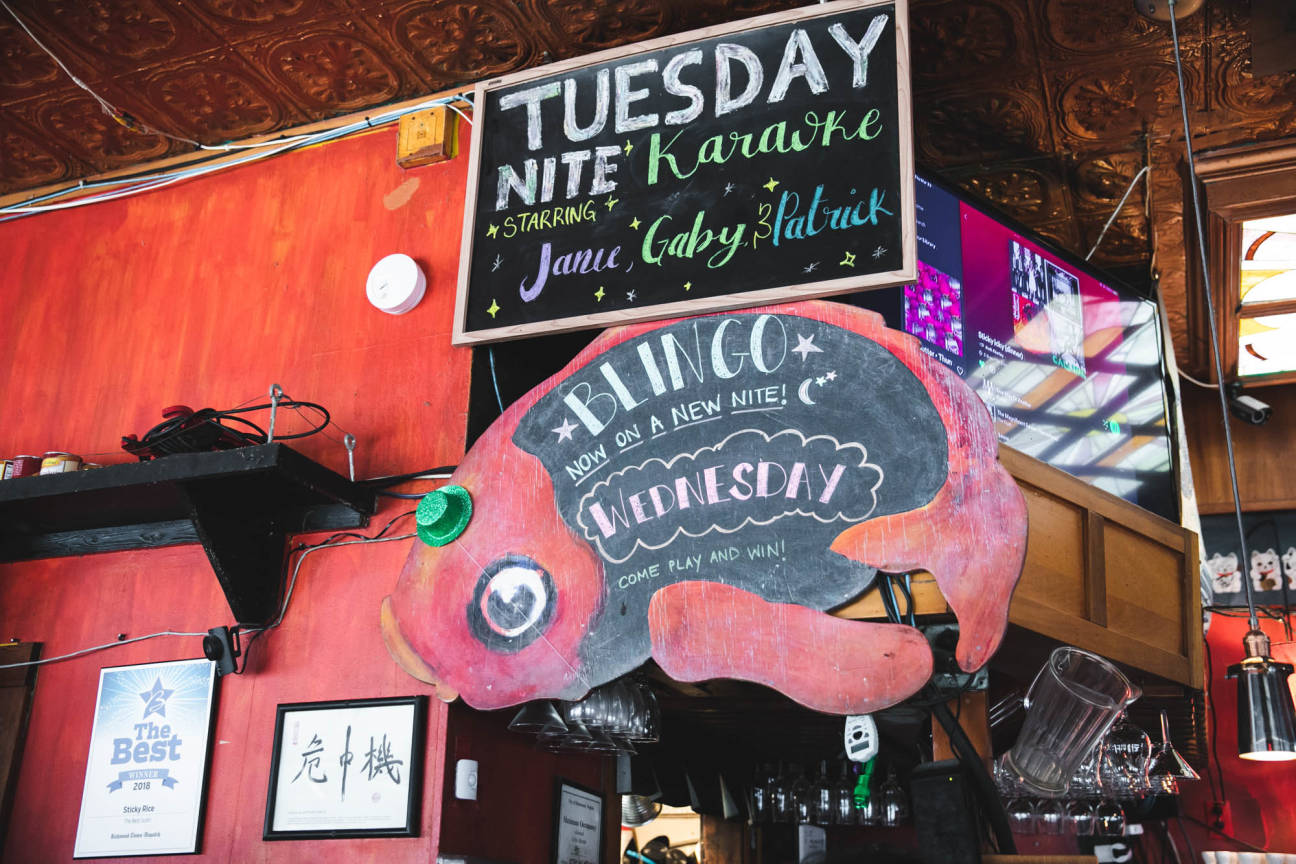 TUESDAY
NITE Karaoke
STARRING
Janie, Gaby, & Patrick
BLINGO
NOW ON A NEW NITE!
WEDNESDAY
COME PLAY AND WIN!
The
Best
WINNER
2018
Sticky Rice
The Best Sushi
Richmond Times-Dispatch
危中機
Sticky icky (dinner)